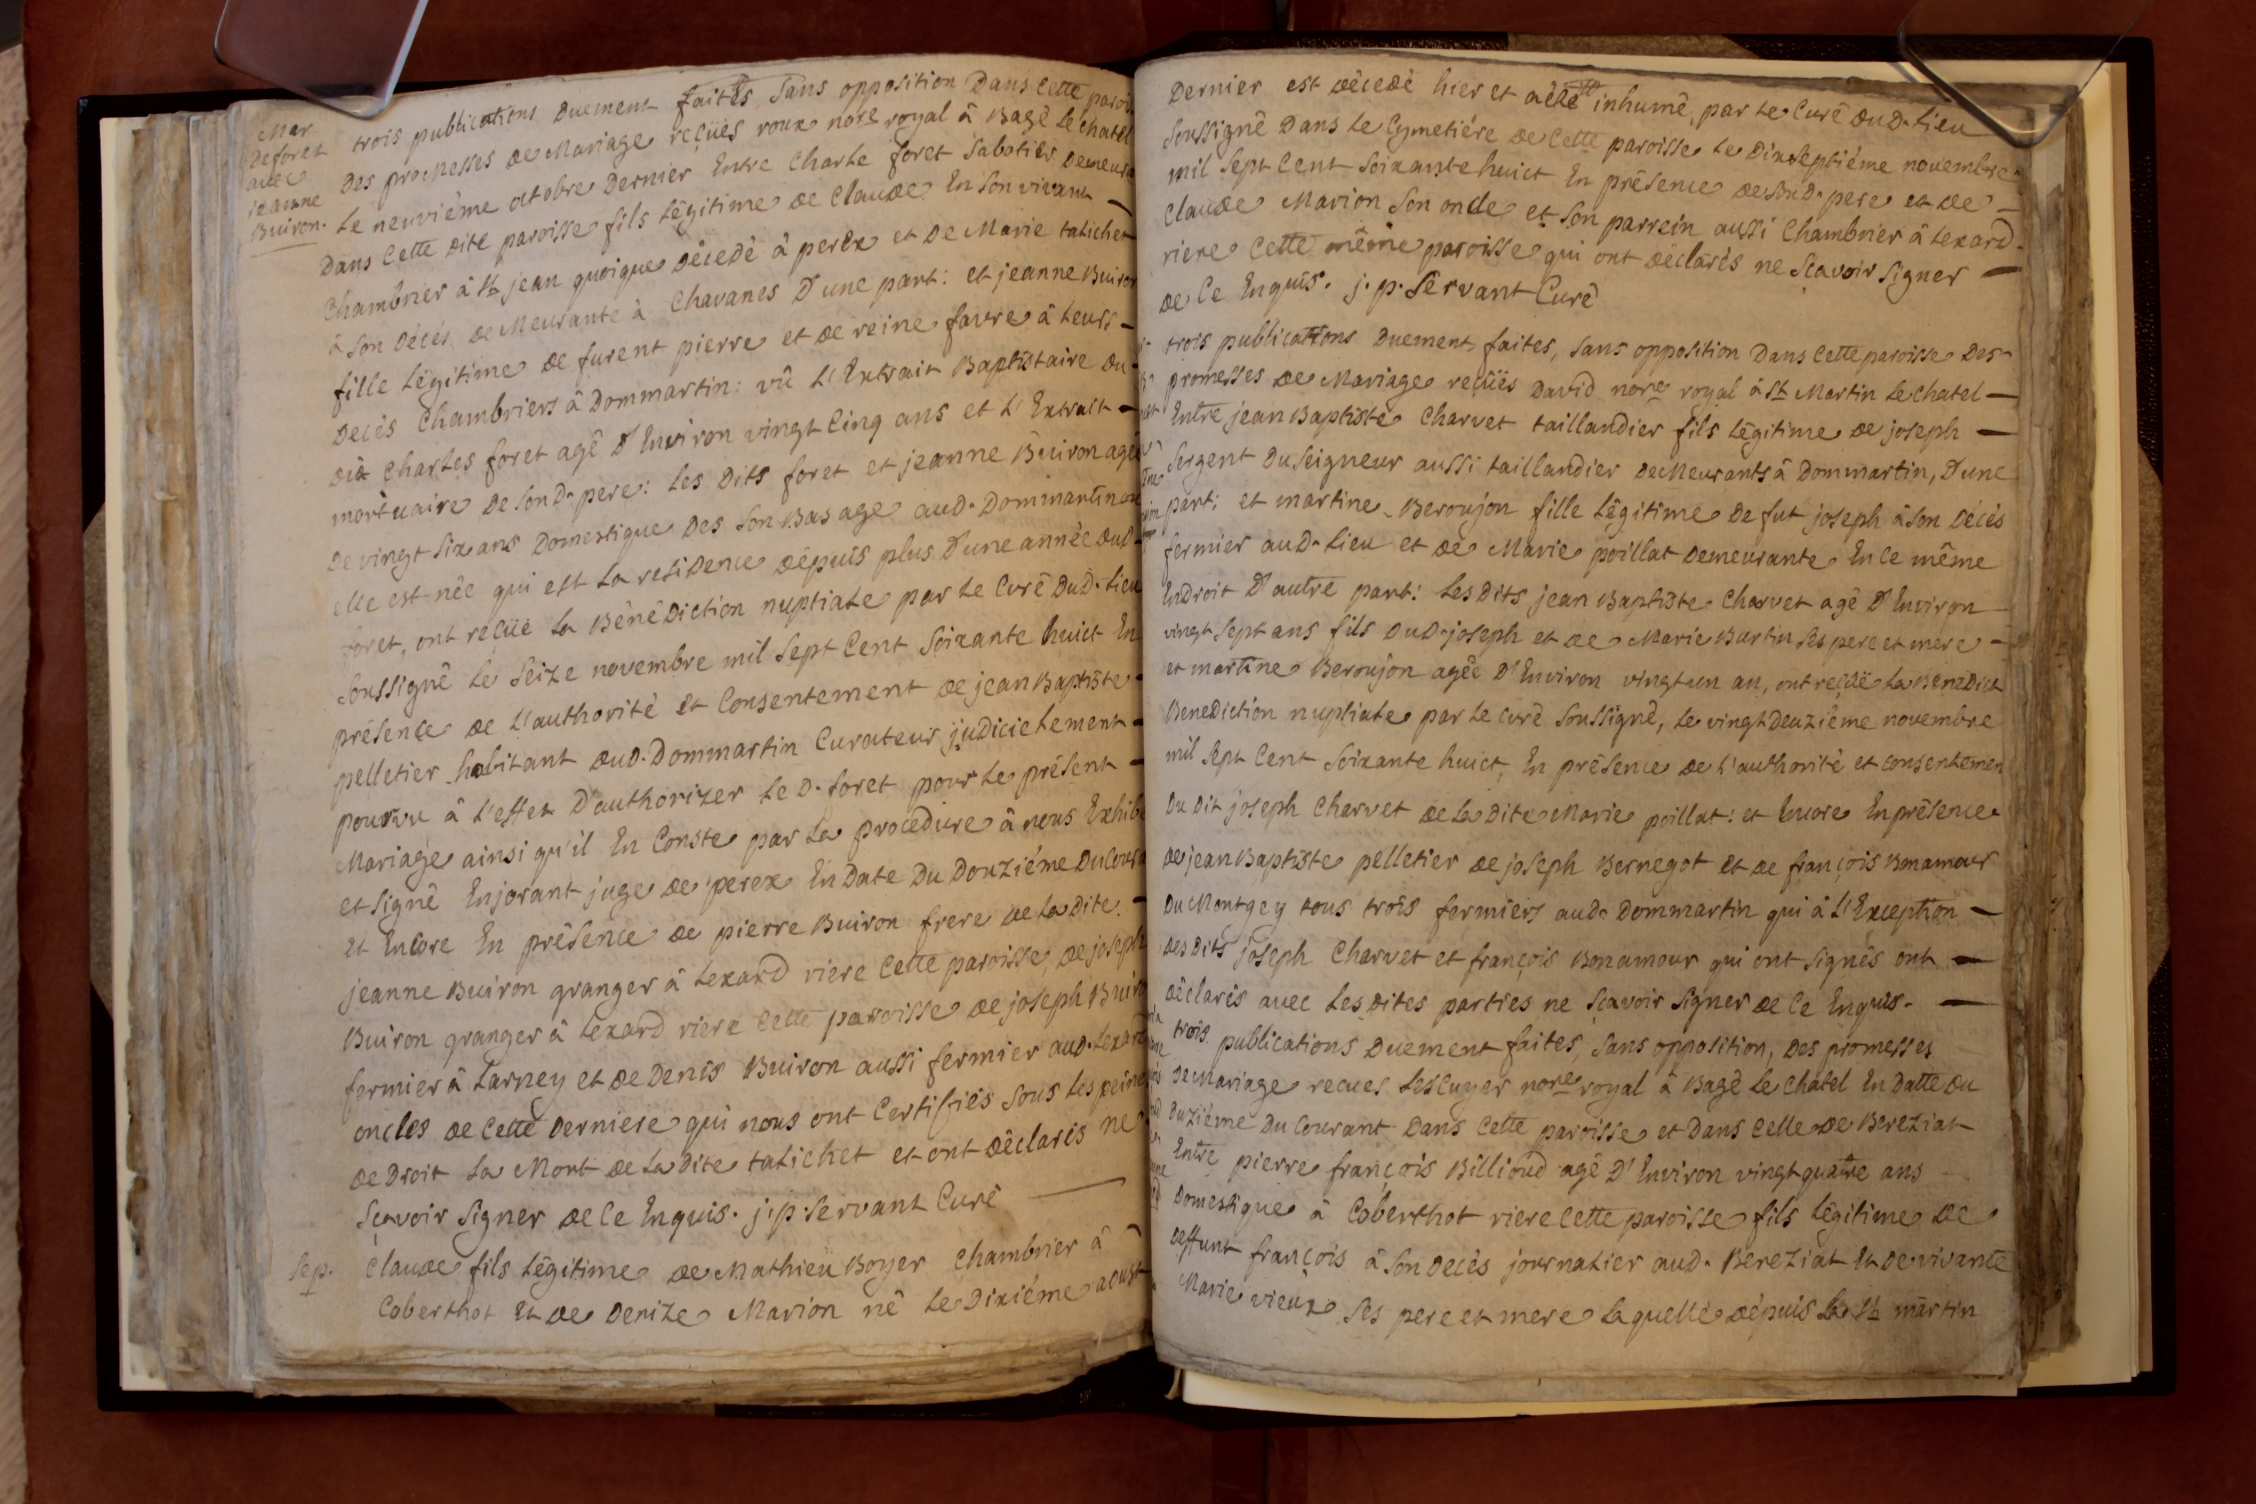 Mar
De foret
avec
jeanne
Buiron.
trois publications Duement faites Sans opposition Dans Cette parois
Des promesses de Mariage reçüës roux nore royal â Bagê le chatel
Le neuviéme octobre Dernier Entre Charle foret Sabotiér Demeura
Dans Cette Dite paroisse fils lêgitime de Claude En Son vivant
Chambrier â St jean quoique dêcedê â perex et De Marie talichet
â Son Décés deMeurante à Chavanes D'une part: et jeanne Buiron
fille Lêgitime de furent pierre et de reine favre â Leurs
Decês Chambriers â Dommartin: vû L'Extrait Baptistaire du
dit Charles foret agê D'Environ vingt Cinq ans et L'Extrait
mortuaire De Son d. pere: Les Dits foret et jeanne Buiron agée
De vingt Six ans Domestique Des Son Bas age aud. Dommartin ou
elle est nêe qui est La residence dépuis plus D'une année dud.
foret, ont reçüe La Bênêdiction nuptiale par Le Curê Dud. Lieu
Soussignê Le Seize novembre mil Sept Cent Soixante huict En
présence de L'authorité et Consentement de jean Baptiste
pelletier habitant dud. Dommartin Curateur judicielement
pourvu â L'effet D'authorizer Le D. foret pour Le présent
Mariage ainsi qu'il En Conste par La procedure â nous Exhibé
et Signê Enjorant juge de perex En Date Du Douziéme Du Coura
et Encore En prêsence de pierre Buiron frere de La Dite
jeanne Buiron granger â Lexard riere Cette paroisse, de joseph
Buiron granger â Lexard riere Cette paroisse de joseph Buiro
fermier â Larney et de Denis Buiron aussi fermier aud. Lexard
oncles de Cette Derniere qui nous ont Certifiés Sous Les peine
de Droit La Mort de La Dite talichet et ont dêclarés ne
Sçavoir Signer de Ce Enquis. j. p. Servant Curê
Sep.
Claude fils Lêgitime de Mathieu Boyer Chambrier â
Coberthot et de Denize Marion nê Le Dixiéme aoust
Dernier est dêcedê hier et aêtê inhumê, par Le Curê dud. Lieu
Soussignê Dans Le Cymetiére de Cette paroisse Le Dix Septiéme novembre
mil Sept Cent Soixante huict En prêsence de Sond. pere et de
Claude Marion Son oncle et Son parrein aussi Chambrier â Lexard
riere Cette même paroisse qui ont dêclarés ne Sçavoir Signer
de Ce Enquis. j. p. Servant Curê
trois publications Duement faites, Sans opposition Dans Cette paroisse Des
promesses de Mariage reçüës David nore royal â St Martin Le Chatel
Entre jean Baptiste Charvet taillandier fils Lêgitime de joseph
Sergent Du Seigneur aussi taillandier deMeurants â Dommartin, D'une
part: et martine Beroujon fille Lêgitime De fut joseph â Son Décés
fermier aud. Lieu et de Marie poillat Demeurante En Ce même
Endroit D'autre part: Les Dits jean Baptiste Charvet agê D'Environ
vingt Sept ans fils Dud. joseph et de Marie Burtin Ses pere et mere
et martine Beroujon agêe D'Environ vingt un an, ont reçüë La Benedict
Benediction nuptiale par Le Curê Soussignê, Le vingt Deuziême novembre
mil Sept Cent Soixante huict, En prêsence de L'authoritê et consentemen
Du Dit joseph Charvet de La Dite Marie poillat: et Encore En prêsence
de jean Baptiste pelletier de joseph Bernegot et de françois Bonamour
Du Montgey tous trois fermiers aud. Dommartin qui â L'Exception
des Dits joseph Charvet et françois Bonamour qui ont Signés ont
dêclarés avec Les Dites parties ne Sçavoir Signer de Ce Enquis.
trois publications Duement faites, Sans opposition, Des promesses
De Mariage recues Lescuyer nore royal â Bagê Le Chatel En Datte du
Duziéme Du Courant Dans Cette paroisse et Dans Celle de Bereziat
Entre pierre françois Billioud agê D'Environ vingt quatre ans
Domestique à Coberthot riere Cette paroisse fils Lêgitime de
deffunt françois â Son Decés journalier aud. Bereziat et De vivante
Marie vieux Ses pere et mere Laquelle dépuis La St martin